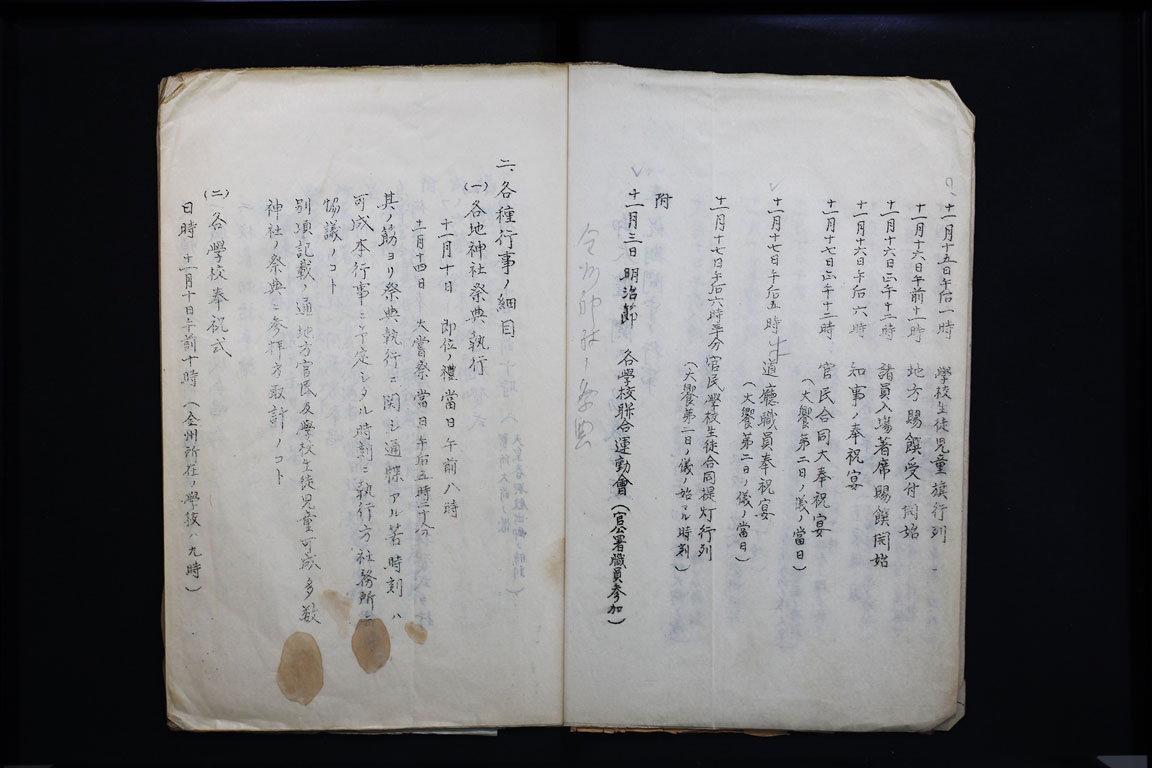 十一月十五日午后一時 學校生徒児童旗行列
十一月十六日午前十一時 地方賜饌受付開始
十一月十六日正午十二時 諸員入場著席賜饌開始
十一月十六日午后六時 知事ノ奉祝宴
十一月十七日正午十二時 官民合同大奉祝宴
(大饗第二日ノ儀ノ當日)
十一月十七日午后五時半 道廳職員奉祝宴
(大饗第二日ノ儀ノ當日)
十一月十七日午后六時半分 官民學校生徒合同提灯行列
(大饗第二日ノ儀ノ始マル時刻)
附
十一月三日 明治節 各學校聯合運動會(官公署職員參加)
全州神社ノ祭典
二、各種行事ノ細目
(一)各地神社祭典執行
十一月十日 即位ノ禮當日午前八時
十一月十四日 大嘗祭當日午后五時三十分
其ノ筋ヨリ祭典執行ニ関シ通牒アル筈時刻ハ
可成本行事ニ予定シタル時刻ニ執行方社務所ニ
協議ノコト
別項記載ノ通地方官民及學校生徒児童可成多数
神社ノ祭典ニ參拜方取計ノコト
(二)各學校奉祝式
日時 十一月十日午前十時(全州所在ノ學校ハ九時)